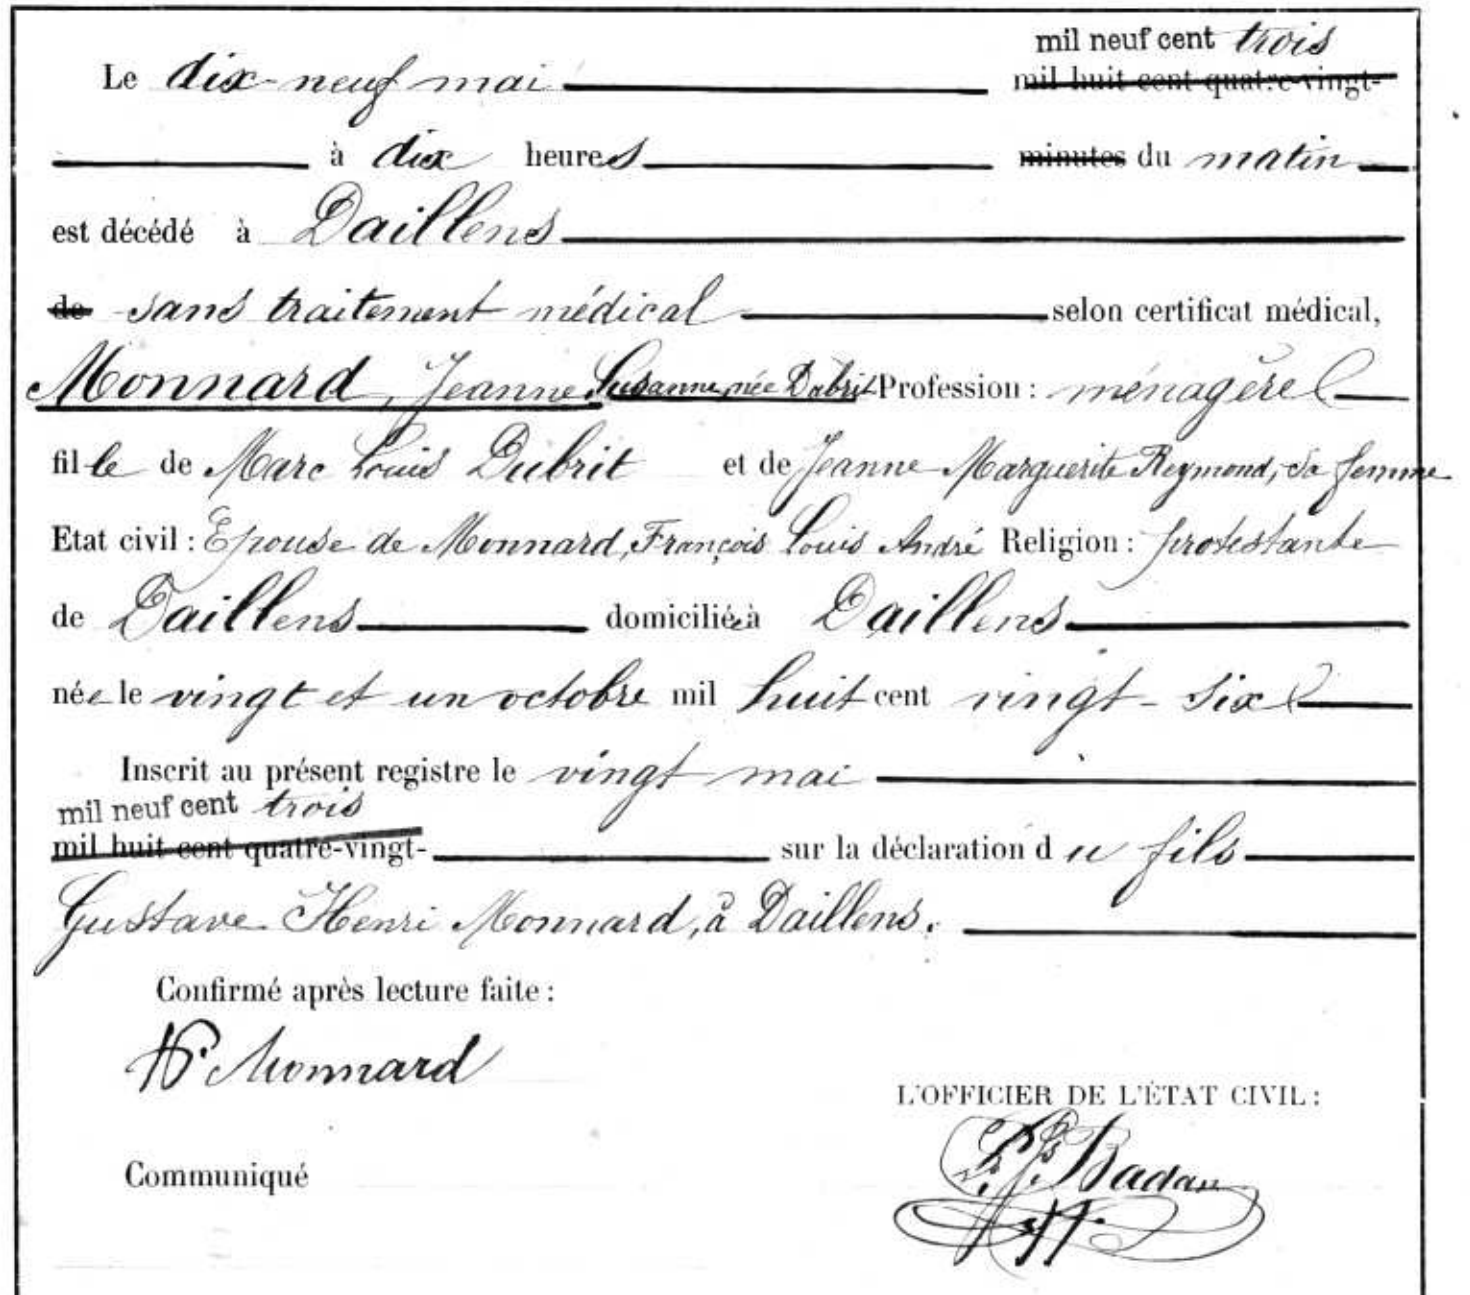 mil neuf cent trois
Le dix-neuf mai mil huit cent quatre-vingt-
à dix heures minutes du matin
est décédé à Daillens
de sans traitement médical selon certificat médical,
Monnard, Jeanne Susanne, née Dubrit Profession : ménagère
fille de Marc Louis Dubrit et de Jeanne Marguerite Reymond, sa femme
Etat civil : Epouse de Monnard, François Louis André Religion : protestante
de Daillens domiciliée à Daillens
née le vingt et un octobre mil huit cent vingt-six
Inscrit au présent registre le vingt mai
mil neuf cent trois
mil huit cent quatre-vingt- sur la déclaration du fils
Gustave Henri Monnard, à Daillens.
Confirmé après lecture faite :
Monnard
L'OFFICIER DE L'ÉTAT CIVIL :
Badan
Communiqué